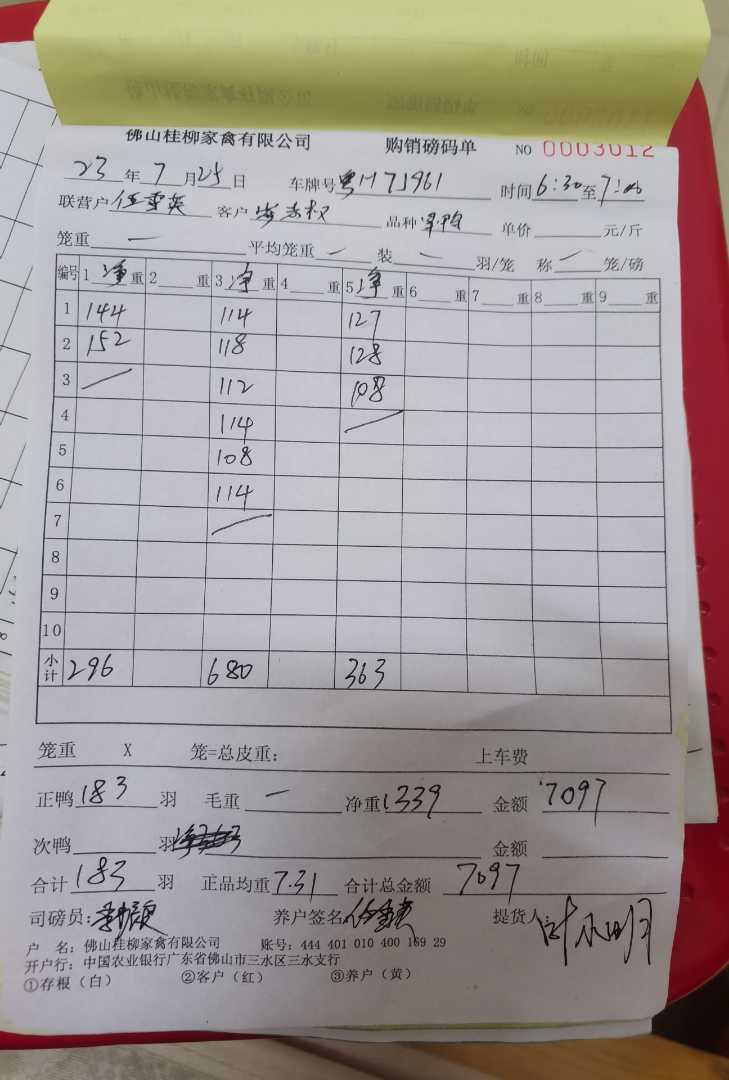 佛山桂柳家禽有限公司 购销磅码单 NO 0003012
23 年 7 月 25 日 车牌号 粤H7J961 时间 6:30 至 7:00
联营户 客户 品种 单价 元/斤
笼重 一 平均笼重 一 装 一 羽/笼 称 一 笼/磅
编号 1 净 重 2 重 3 净 重 4 重 5 净 重 6 重 7 重 8 重 9 重
1 144 114 127
2 152 118 128
3 112 108
4 114
5 108
6 114
7
8
9
10
小计 296 680 363
笼重 X 笼=总皮重: 上车费
正鸭 183 羽 毛重 一 净重 1339 金额 7097
次鸭 羽 金额
合计 183 羽 正品均重 7.31 合计总金额 7097
司磅员: 养户签名 提货人
户 名: 佛山桂柳家禽有限公司 账号: 444 401 010 400 169 29
开户行: 中国农业银行广东省佛山市三水区三水支行
①存根（白） ②客户（红） ③养户（黄）